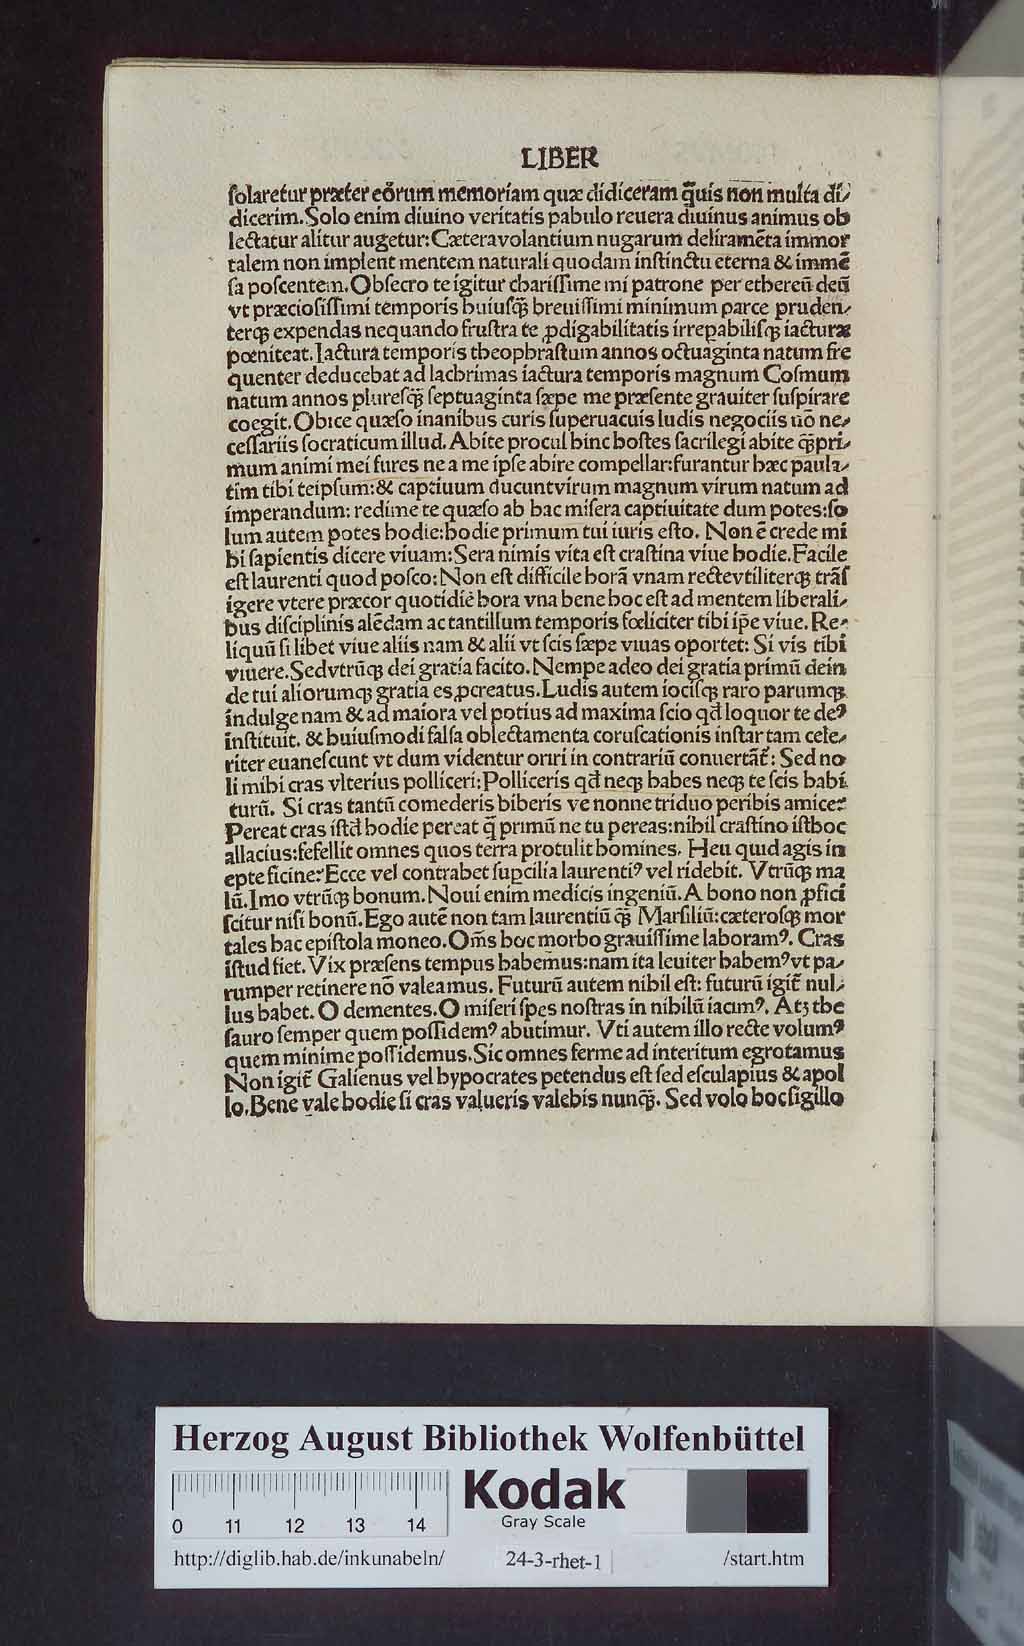 LIBER
ſolaretur præter eorum memoriam quæ didiceram q̃uis non multa di⸗
dicerim. Solo enim diuino veritatis pabulo reuera diuinus animus ob
lectatur alitur augetur: Cætera volantium nugarum deliramẽta immor
talem non implent mentem naturali quodam inſtinctu eterna & immẽ
ſa poſcentem. Obſecro te igitur chariſſime mi patrone per ethereũ deũ
vt præcioſiſſimi temporis huiuſq̃ breuiſſimi minimum parce pruden⸗
terqꝫ expendas nequando fruſtra te ꝓdigabilitatis irrepabiliſqꝫ iacturæ
pœniteat. Iactura temporis theophraſtum annos octuaginta natum fre
quenter deducebat ad lachrimas iactura temporis magnum Coſmum
natum annos pluresq̃ ſeptuaginta ſæpe me præſente grauiter ſuſpirare
coegit. Obice quæſo inanibus curis ſuperuacuis ludis negociis nõ ne⸗
ceſſariis ſocraticum illud. Abite procul hinc hoſtes ſacrilegi abite q̃pri⸗
mum animi mei fures ne a me ipſe abire compellar: furantur hæc paula⸗
tim tibi teipſum: & captiuum ducunt virum magnum virum natum ad
imperandum: redime te quæſo ab hac miſera captiuitate dum potes: ſo
lum autem potes hodie: hodie primum tui iuris eſto. Non ẽ crede mi
hi ſapientis dicere viuam: Sera nimis vita eſt craſtina viue hodie. Facile
eſt laurenti quod poſco: Non eſt difficile horã vnam recte vtiliterqꝫ trãſ
igere vtere præcor quotidie hora vna bene hoc eſt ad mentem liberali⸗
bus diſciplinis alẽdam ac tantillum temporis fœliciter tibi ip̃e viue. Re⸗
liquũ ſi libet viue aliis nam & alii vt ſcis ſæpe viuas oportet: Si vis tibi
viuere. Sed vtrũqꝫ dei gratia facito. Nempe adeo dei gratia primũ dein
de tui aliorumqꝫ gratia es ꝓcreatus. Ludis autem iociſqꝫ raro parumqꝫ
indulge nam & ad maiora vel potius ad maxima ſcio qd̃ loquor te deꝰ
inſtituit. & huiuſmodi falſa oblectamenta coruſcationis inſtar tam cele⸗
riter euaneſcunt vt dum videntur oriri in contrariũ conuertãt̃: Sed no
li mihi cras vlterius polliceri: Polliceris qd̃ neqꝫ habes neqꝫ te ſcis habi
turũ. Si cras tantũ comederis biberis ve nonne triduo peribis amice?
Pereat cras iſtd̃ hodie pereat q̃ primũ ne tu pereas: nihil craſtino iſthoc
allacius: fefellit omnes quos terra protulit homines. Heu quid agis in
epte ficine? Ecce vel contrahet ſupcilia laurentiꝰ vel ridebit. Vtrũqꝫ ma
lũ. Imo vtrũqꝫ bonum. Noui enim medicis ingeniũ. A bono non ꝓfici
ſcitur niſi bonũ. Ego autẽ non tam laurentiũ q̃ Marſiliũ: cæteroſqꝫ mor
tales hac epiſtola moneo. Om̃s hoc morbo grauiſſime laboramꝰ. Cras
iſtud fiet. Vix præſens tempus habemus: nam ita leuiter habemꝰ vt pa⸗
rumper retinere nõ valeamus. Futurũ autem nihil eſt: futurũ igit̃ nul⸗
lus habet. O dementes. O miſeri ſpes noſtras in nihilũ iacimꝰ. Atꝫ the
ſauro ſemper quem poſſidemꝰ abutimur. Vti autem illo recte volumꝰ
quem minime poſſidemus. Sic omnes ferme ad interitum egrotamus
Non igit̃ Galienus vel hypocrates petendus eſt ſed eſculapius & apol
lo. Bene vale hodie ſi cras valueris valebis nunq̃. Sed volo hoc ſigillo
Herzog August Bibliothek Wolfenbüttel
Kodak
Gray Scale
0 11 12 13 14
http://diglib.hab.de/inkunabeln/ 24-3-rhet-1 /start.htm